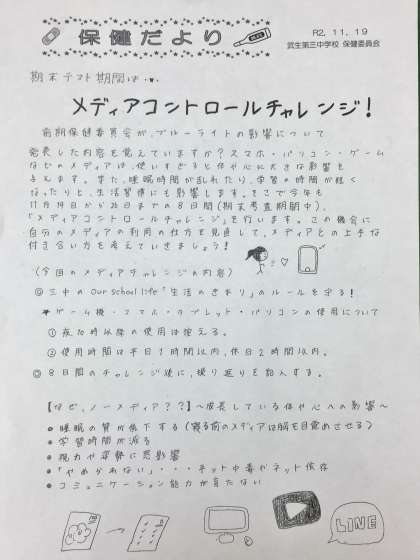 保健だより
R2.11.19
武生第三中学校 保健委員会
期末テスト期間は・・・
メディアコントロールチャレンジ!
前期保健委員会が、ブルーライトの影響について
発表した内容を覚えていますか?スマホ・パソコン・ゲーム
などのメディアは、使いすぎると体や心に大きな影響を
与えます。また、睡眠時間が乱れたり、学習の時間が短く
なったりと、生活習慣にも影響します。そこで今年も
11月19日から26日までの8日間(期末考査期間中)、
「メディアコントロールチャレンジ」を行います。この機会に
自分のメディアの利用の仕方を見直して、メディアとの上手な
付き合い方を考えていきましょう!
(今回のメディアチャレンジの内容)
◎三中のOur school life「生活のきまり」のルールを守る!
*ゲーム機・スマホ・タブレット・パソコンの使用について
①夜10時以降の使用は控える。
②使用時間は平日1時間以内、休日2時間以内。
◎8日間のチャレンジ後に、振り返りを記入する。
【なぜ、ノーメディア??】~成長している体や心への影響~
●睡眠の質が低下する(寝る前のメディアは脳を目覚めさせる)
●学習時間が減る
●視力や姿勢に悪影響
●「やめられない」・・・ネット中毒やネット依存
●コミュニケーション能力が育たない
LINE